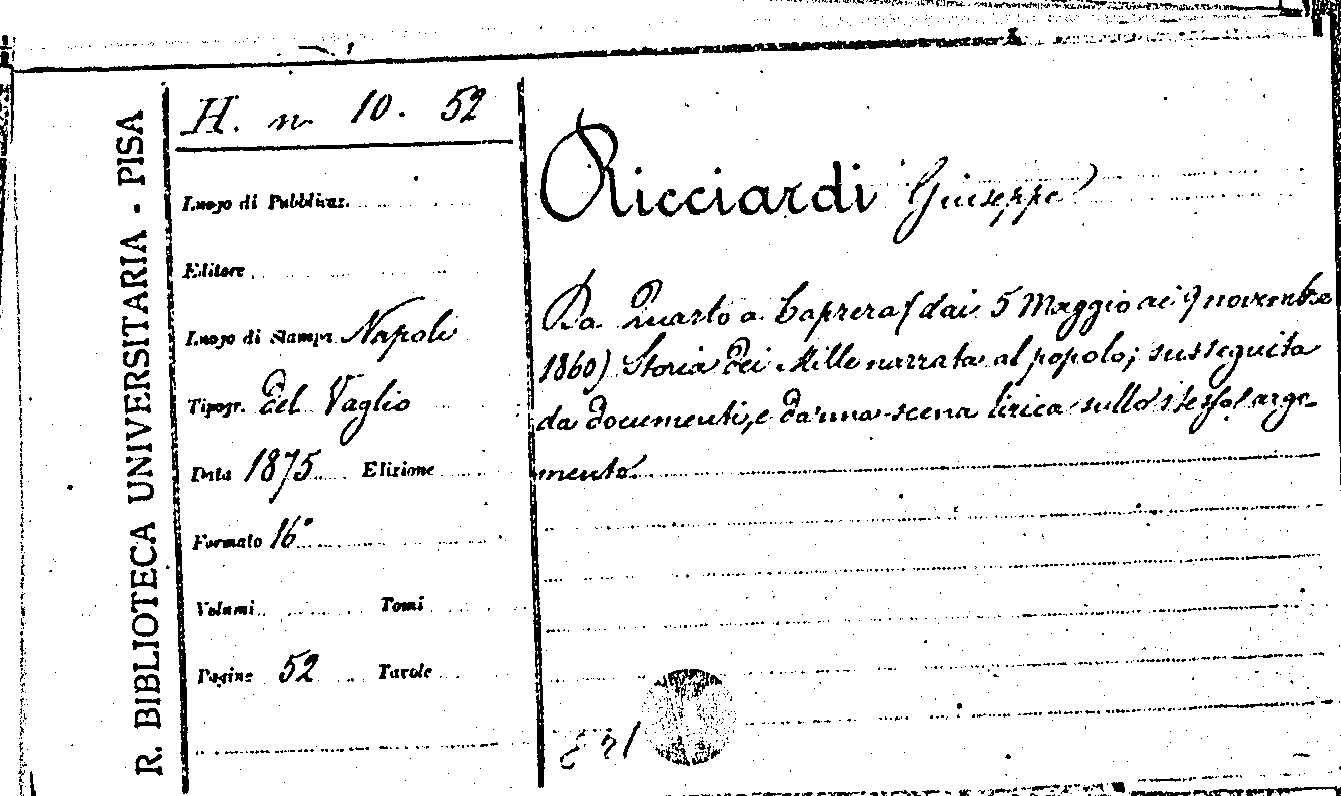 R. BIBLIOTECA UNIVERSITARIA - PISA
H. n. 10. 52
Luogo di Pubblicaz.
Editore
Luogo di Stampa Napoli
Tipogr. del Vaglio
Data 1875 Edizione
Formato 16°
Volumi Tomi
Pagine 52 Tavole
Ricciardi Giuseppe
Da Quarto a Caprera (dai 5 Maggio ai 9 novembre
1860) Storia dei Mille narrata al popolo; susseguita
da documenti, e da una scena lirica sullo stesso argo-
mento.